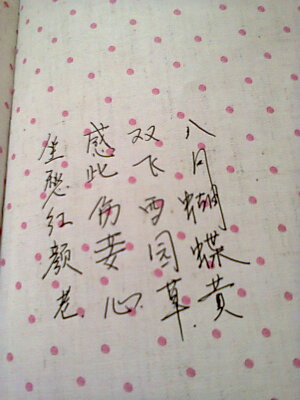 八月蝴蝶黄
双飞西园草
感此伤妾心
坐愁红颜老